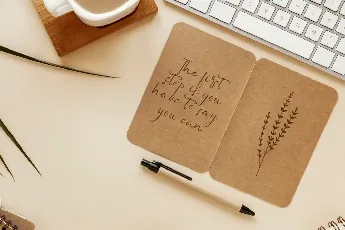 The first
step is you
have to say
you can